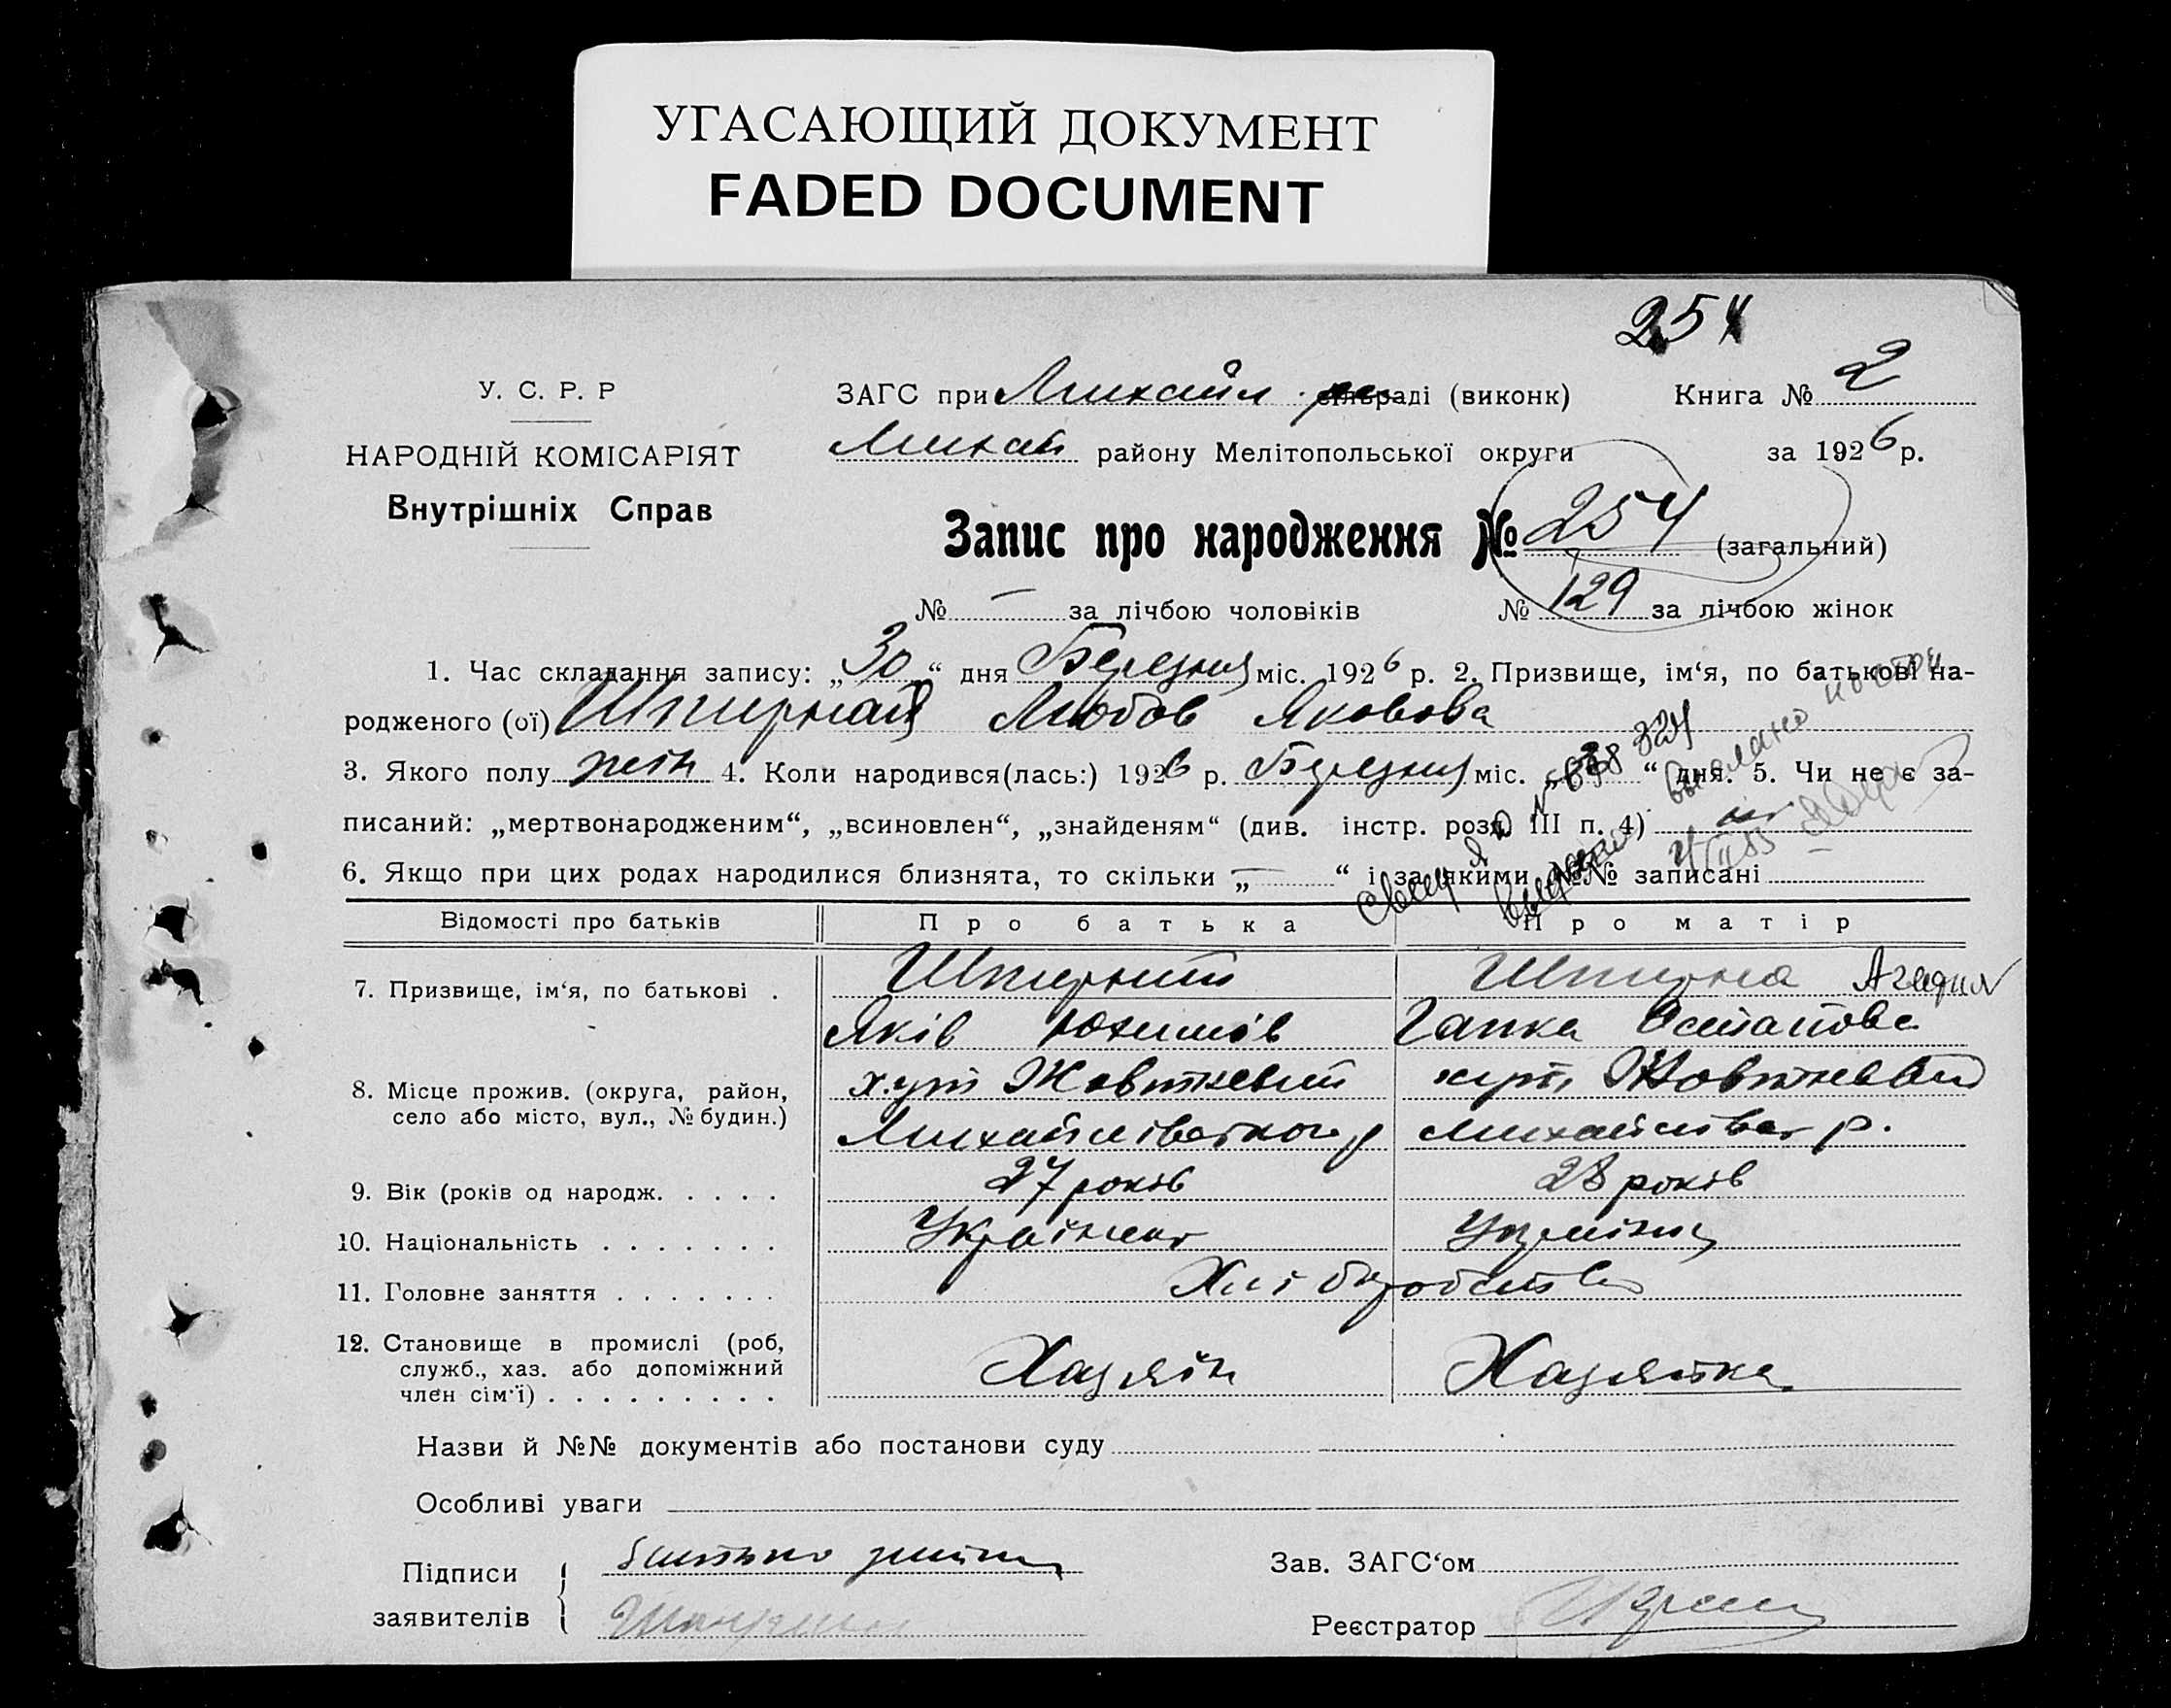 УГАСАЮЩИЙ ДОКУМЕНТ
FADED DOCUMENT
254
У. С. Р. Р
НАРОДНІЙ КОМІСАРІЯТ
Внутрішніх Справ
ЗАГС при Михайл. сільраді (виконк) Книга № 2
Михай району Мелітопольської округи за 1926 р.
Запис про народження № 254 (загальний)
№ — за лічбою чоловіків № 129 за лічбою жінок
1. Час складання запису: „30“ дня Березня міс. 1926 р. 2. Призвище, ім‘я, по батькові на-
родженого (ої) Шпирная Любов Яковова
3. Якого полу жін 4. Коли народився(лась:) 1926 р. Березня міс. „ “ дня. 5. Чи не є за-
писаний: „мертвонародженим“, „всиновлен“, „знайденям“ (див. інстр. розд. III п. 4)
6. Якщо при цих родах народилися близнята, то скільки „—“ і за якими №№ записані
Відомості про батьків Про батька Про матір
7. Призвище, ім‘я, по батькові . Шпирний Шпирна
Яків Юхимів Гапка Остапова
8. Місце прожив. (округа, район, село або місто, вул., № будин.) хут Жовтневий хут. Жовтневий
Михайлівського р Михайлівск р.
9. Вік (років од народж. . . . . 27 років 28 років
10. Національність . . . . . . . Українец Українка
11. Головне заняття . . . . . . . Хліборобство
12. Становище в промислі (роб, служб., хаз. або допоміжний член сім‘ї) . . . . . . . . . Хазяїн Хазяйка
Назви й №№ документів або постанови суду
Особливі уваги
Підписи
заявителів
Зав. ЗАГС‘ом
Реєстратор